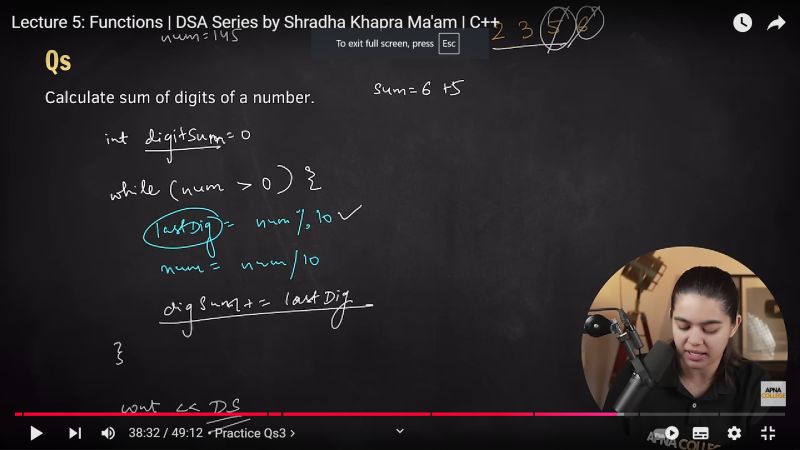 Lecture 5: Functions | DSA Series by Shradha Khapra Ma'am | C++
num=145
To exit full screen, press Esc
2 3 5 6
Qs
Calculate sum of digits of a number.
sum=6 +5
int digitSum=0
while (num > 0) {
lastDig = num % 10 ✓
num = num/10
digSum += lastDig
}
cout << DS
APNA COLLEGE
38:32 / 49:12 • Practice Qs3 >
APNA COLLEGE